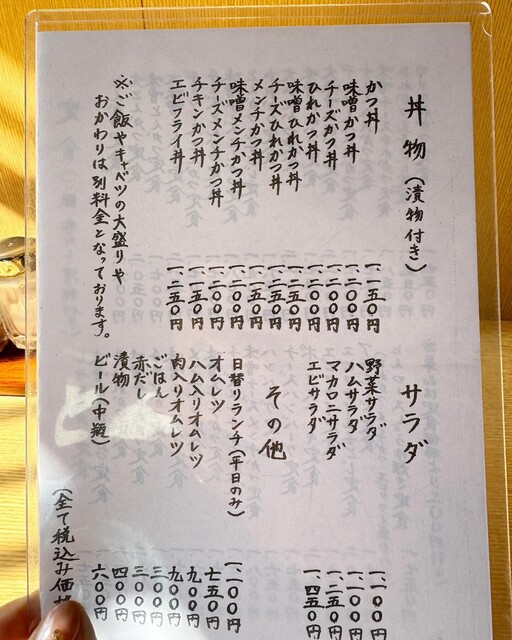 丼物(漬物付き)
かつ丼 一、一五〇円
味噌かつ丼 一、二〇〇円
チーズかつ丼 一、二〇〇円
ひれかつ丼 一、二〇〇円
味噌ひれかつ丼 一、二五〇円
チーズひれかつ丼 一、二五〇円
メンチかつ丼 一、一五〇円
味噌メンチかつ丼 一、二〇〇円
チーズメンチかつ丼 一、二〇〇円
チキンかつ丼 一、一五〇円
エビフライ丼 一、二五〇円
※ご飯やキャベツの大盛りや
おかわりは別料金となっております。
サラダ
野菜サラダ 一、一〇〇円
ハムサラダ 一、一〇〇円
マカロニサラダ 一、二五〇円
エビサラダ 一、四五〇円
その他
日替りランチ(平日のみ) 一、一〇〇円
オムレツ 七五〇円
ハム入りオムレツ 九〇〇円
肉入りオムレツ 九〇〇円
ごはん 三〇〇円
赤だし 三〇〇円
漬物 四〇〇円
ビール(中瓶) 六〇〇円
(全て税込み価格